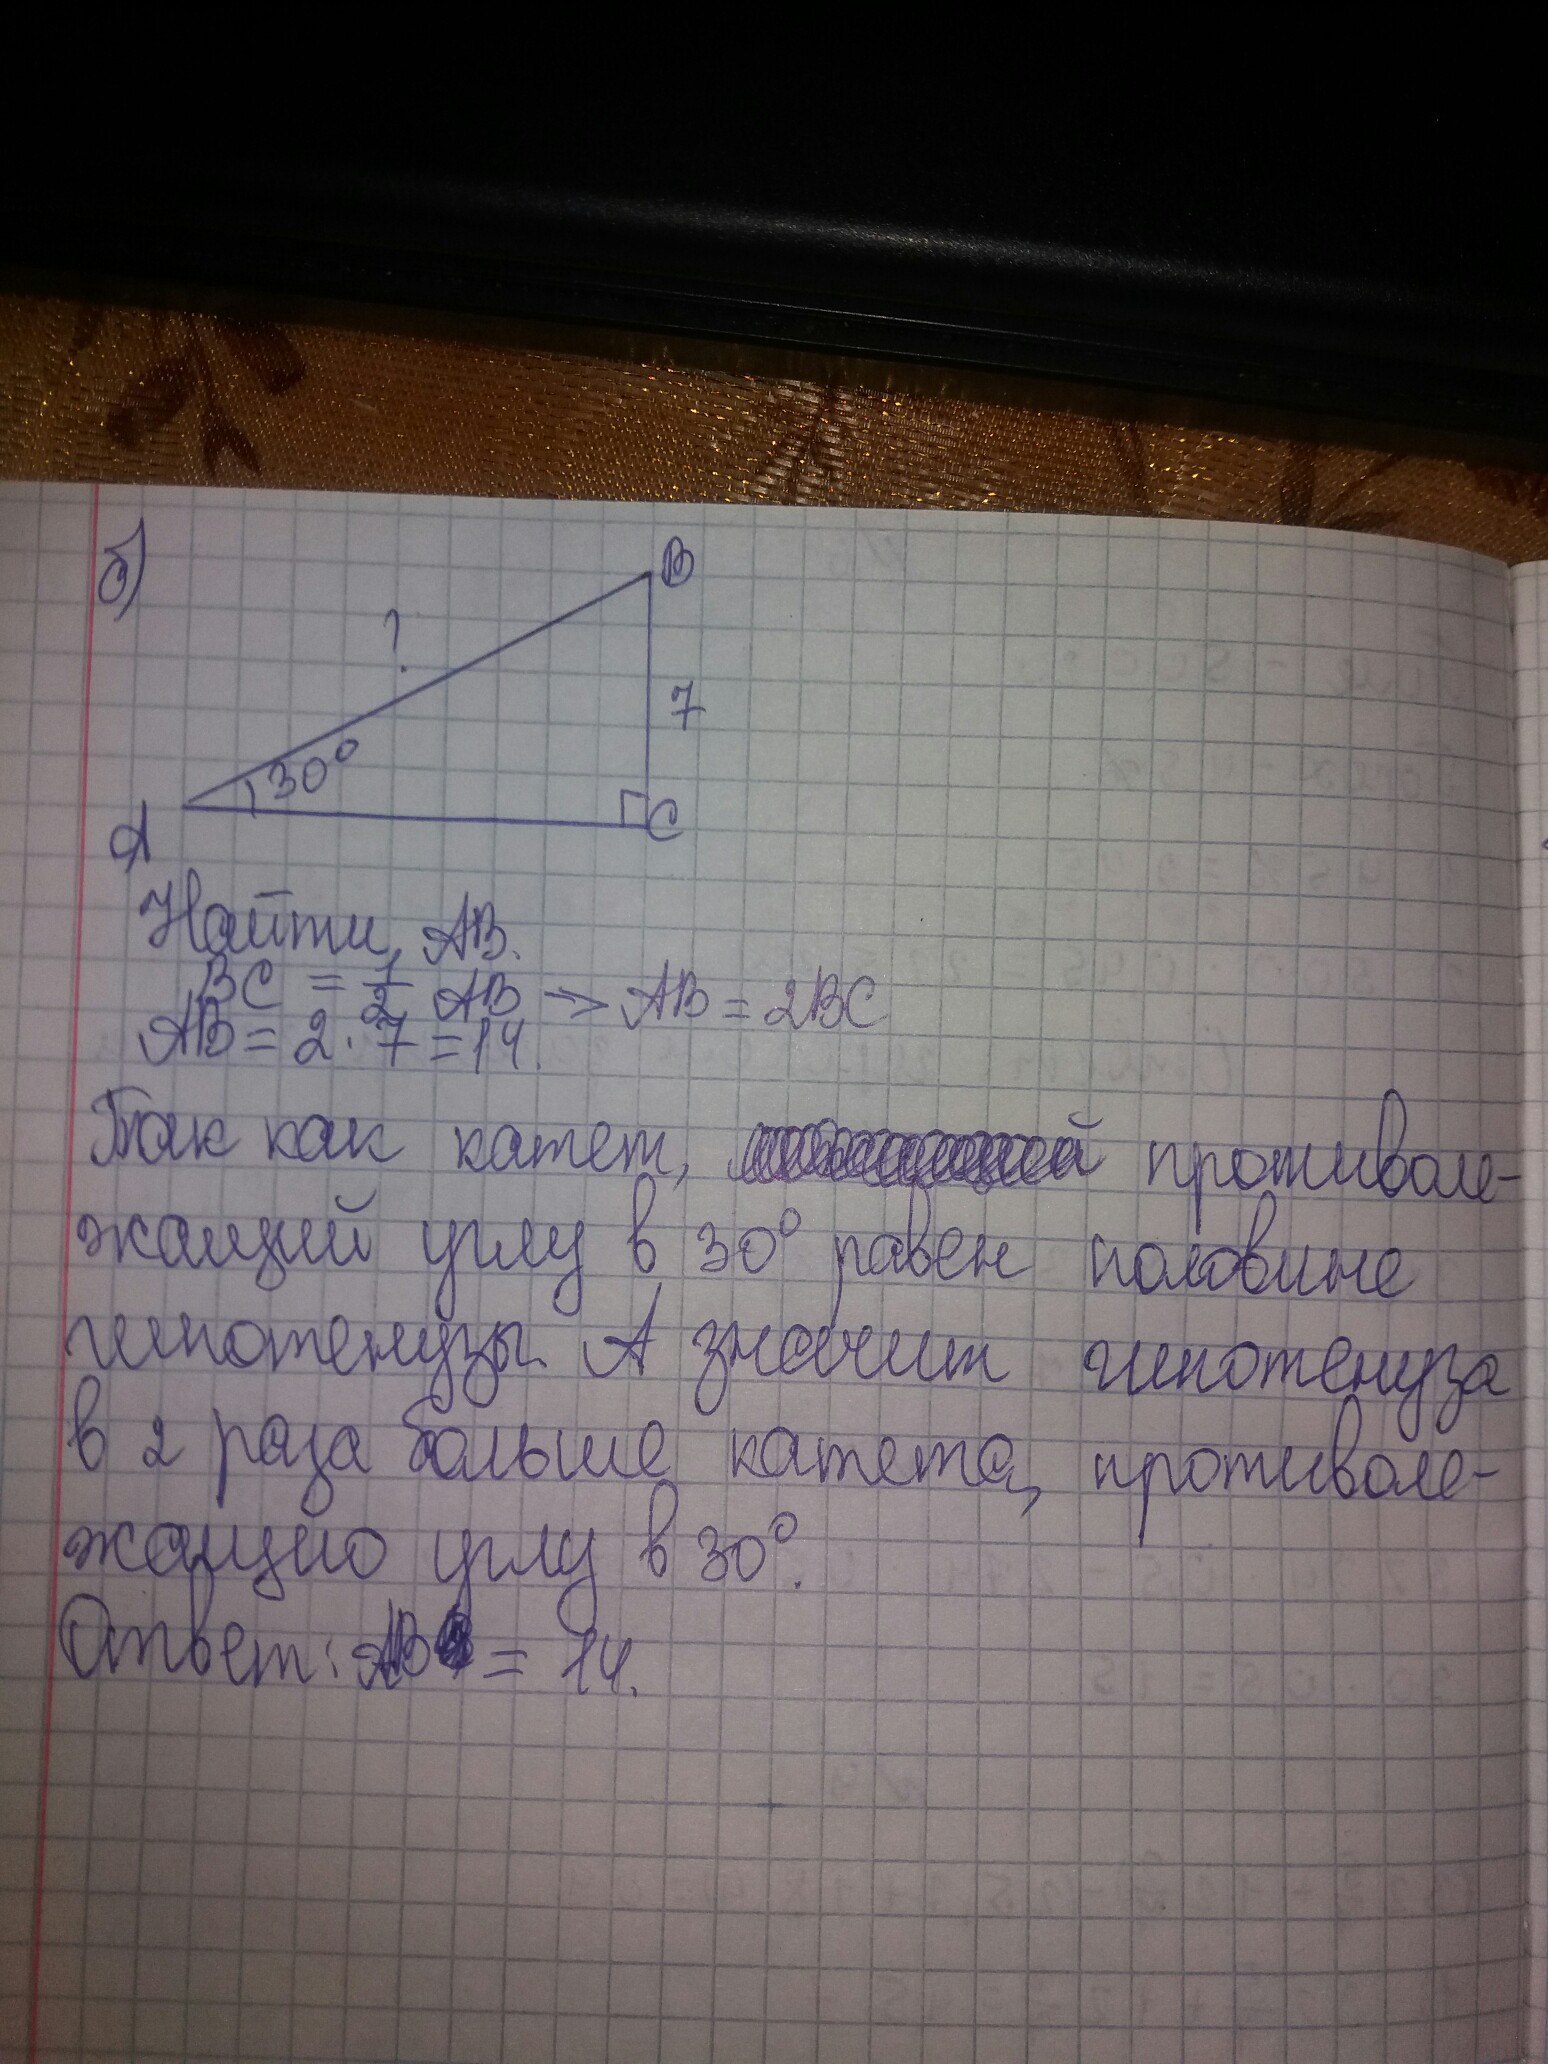 б)
B
?
7
30°
A
C
Найти AB.
BC = 1/2 AB => AB = 2BC
AB = 2 · 7 = 14.
Так как катет, противоле-
жащий углу в 30° равен половине
гипотенузы. А значит гипотенуза
в 2 раза больше катета, противоле-
жащио углу в 30°.
Ответ: AB = 14.